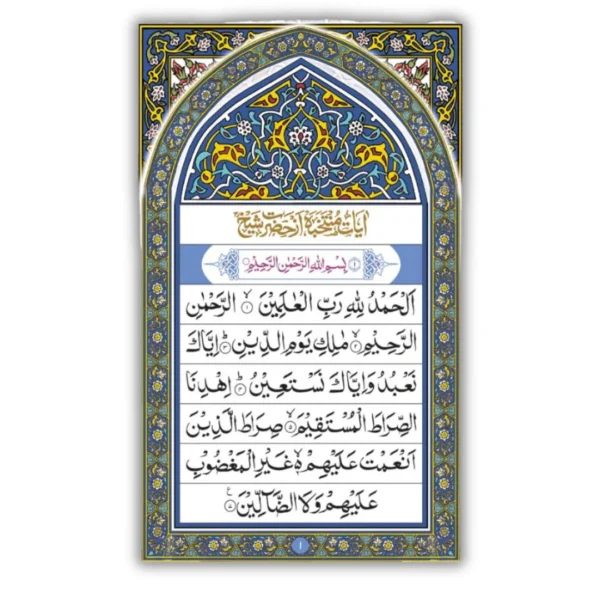 آیات منتخبہ از حضرت شیخ
بِسْمِ اللهِ الرَّحْمٰنِ الرَّحِیْمِ
اَلْحَمْدُ لِلّٰهِ رَبِّ الْعٰلَمِیْنَ ۙ۱ الرَّحْمٰنِ
الرَّحِیْمِ ۙ۲ مٰلِكِ یَوْمِ الدِّیْنِ ؕ۳ اِیَّاكَ
نَعْبُدُ وَاِیَّاكَ نَسْتَعِیْنُ ؕ۴ اِهْدِنَا
الصِّرَاطَ الْمُسْتَقِیْمَ ۙ۵ صِرَاطَ الَّذِیْنَ
اَنْعَمْتَ عَلَیْهِمْ ۙ۬ غَیْرِ الْمَغْضُوْبِ
عَلَیْهِمْ وَلَا الضَّآلِّیْنَ
۱